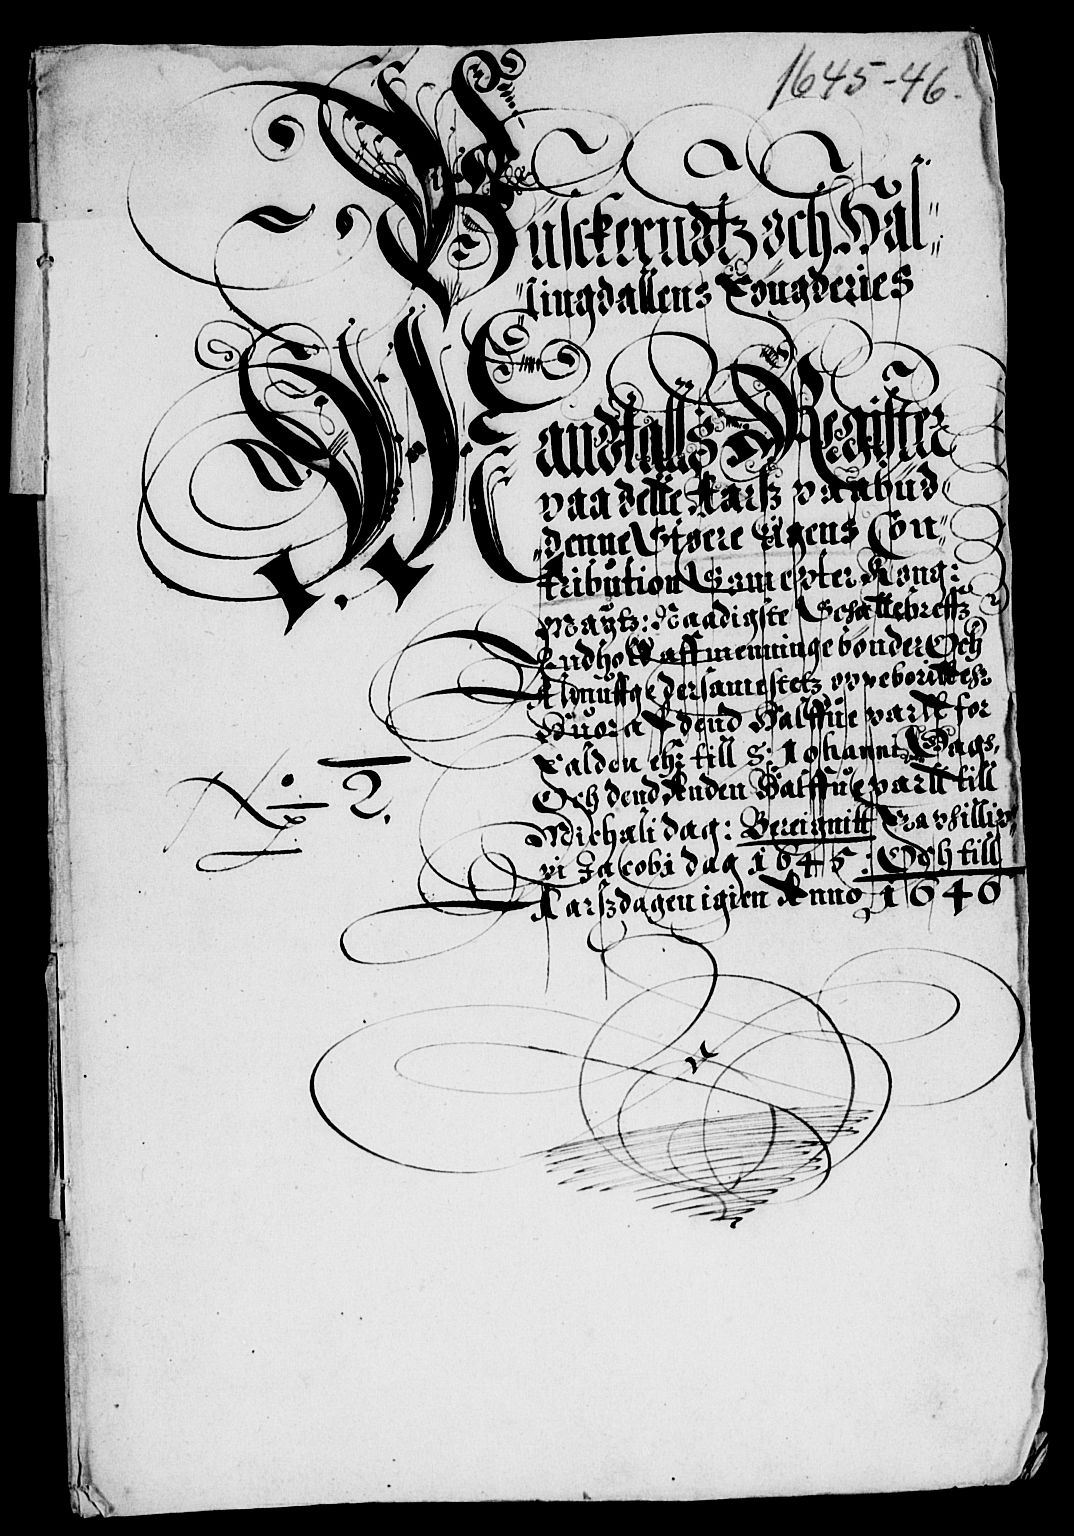 1645-46.
Buschkerudtz och Hal-
lingdallens Fougderies
Mandtalls Register
paa dette Aarsz paabud-
denne Stoere Rigens Con-
tribution Som epter Kong:
Maytz: Naadigste Schattebreffz
Indhold aff menninge bønder Och
Almuffge dersamestetz oppeborittesz
Huora dend Halffue partt for
falden ehr till S: Johannis Dags,
Och dend Anden Halffue partt till
Michali dag: Bereignitt fra Phillip
pi Jacobi dag 1645: Och till
Aarszdagen igien Anno 1646
No 2.